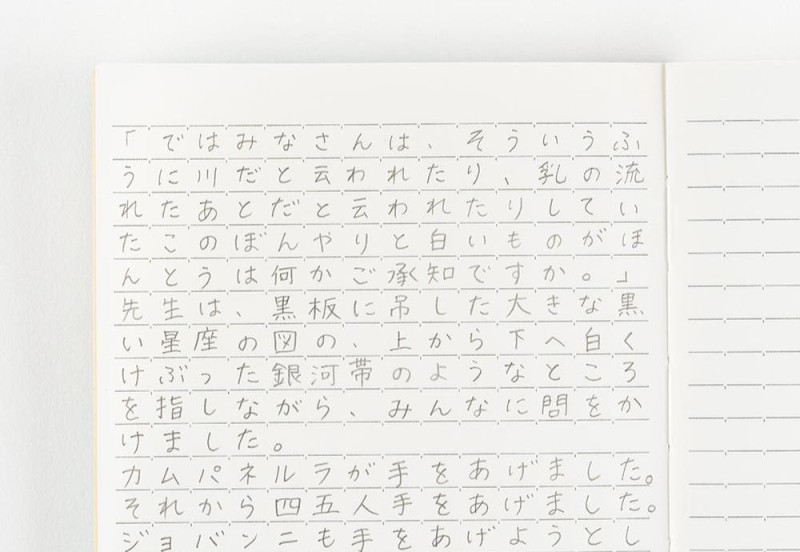 「ではみなさんは、そういうふ
うに川だと云われたり、乳の流
れたあとだと云われたりしてい
たこのぼんやりと白いものがほ
んとうは何かご承知ですか。」
先生は、黒板に吊した大きな黒
い星座の図の、上から下へ白く
けぶった銀河帯のようなところ
を指しながら、みんなに問をか
けました。
カムパネルラが手をあげました。
それから四五人手をあげました。
ジョバンニも手をあげようとし